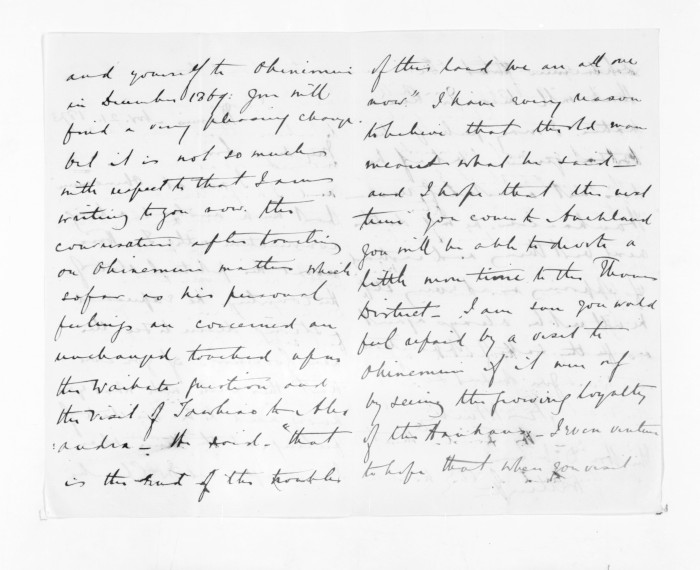 and yourself to Ohinemuri
in December 1869. You will
find a very pleasing change.
but it is not so much
with respect to that I am
writing to you now. The
conversation after touching
on Ohinemuri matters which
so far as his personal
feelings are concerned are
unchanged touched upon
the Waikato question and
the visit of Tawhiao to Alex
andra — He said. "that
is the end of the troubles
of this land we are all one
now." I have every reason
to believe that the old man
meant what he said —
and I hope that the next
time you come to Auckland
you will be able to devote a
little more time to the Thames
District — I am sure you would
feel repaid by a visit to
Ohinemuri if it were only
by seeing the growing loyalty
of the Hauhaus — I even venture
to hope that when you visit